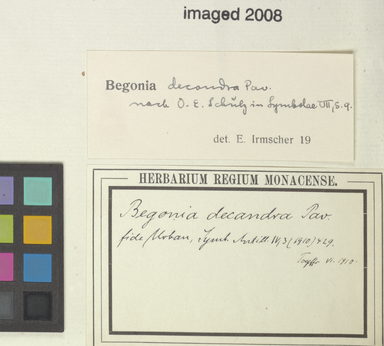 imaged 2008
Begonia decandra Pav.
nach O. E. Schulz in Symbolae VII, S. 9.
det. E. Irmscher 19
HERBARIUM REGIUM MONACENSE.
Begonia decandra Pav.
fide Urban, Symb. Antill. IV, 3 (1910) 429.
VI. 1910.